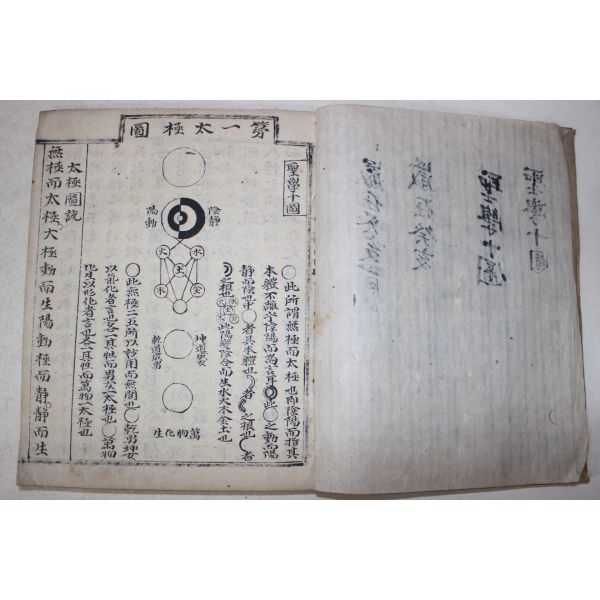 聖學十圖
歲在癸亥
聖學十圖
第一太極圖
聖學十圖
○此所謂無極而太極也卽陰陽而指其
本體不雜乎陰陽而爲言耳此○之動而陽
靜而陰也中○者其本體也
之根也
此陽變陰合而生水火木金土也
陰靜
陽動
火
水
土
木
金
坤道成女
乾道成男
萬物化生
○此無極二五所以妙用而無間也○乾男坤女
以氣化者言也各一其性而男女一太極也○萬物
化生以形化者言也各一其性而萬物一太極也
太極圖說
無極而太極太極動而生陽動極而靜靜而生